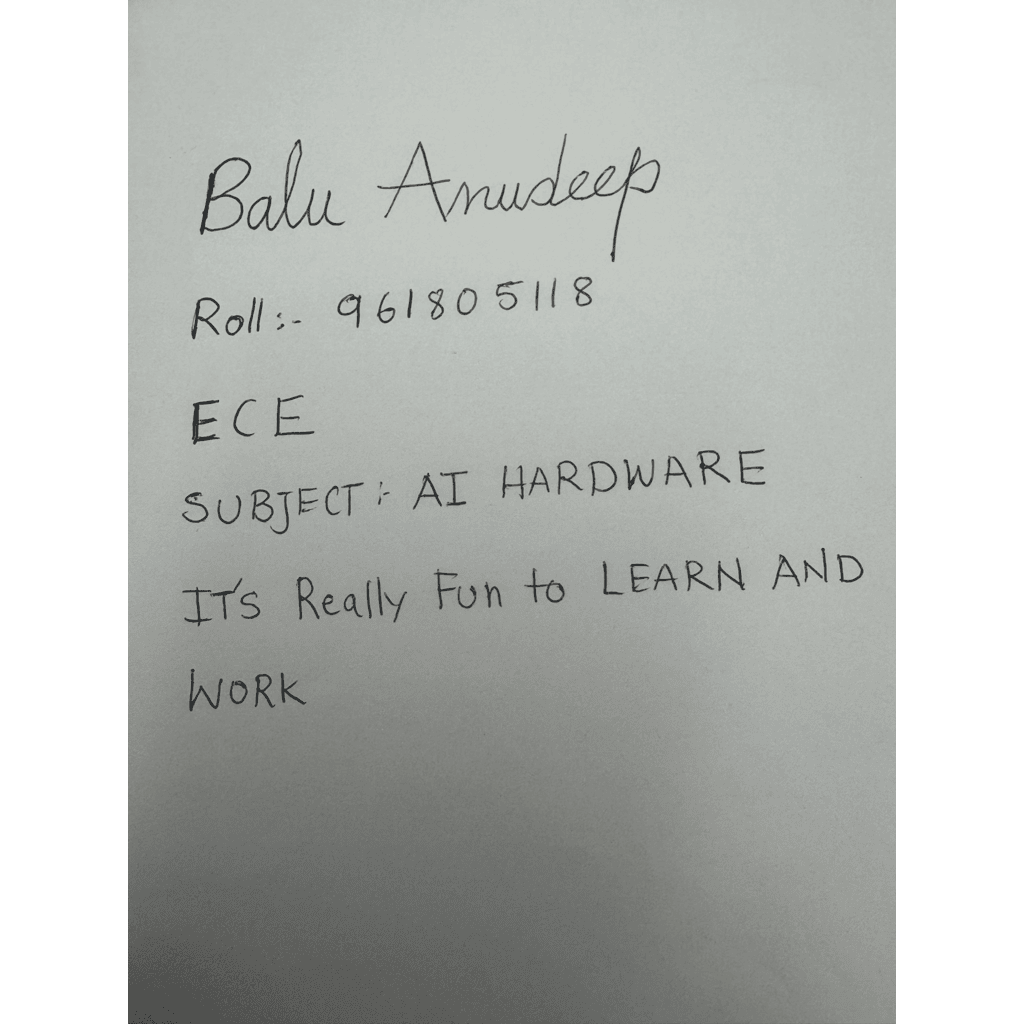 Balu Anudeep
Roll:- 961805118
ECE
SUBJECT:- AI HARDWARE
IT'S Really Fun to LEARN AND
WORK